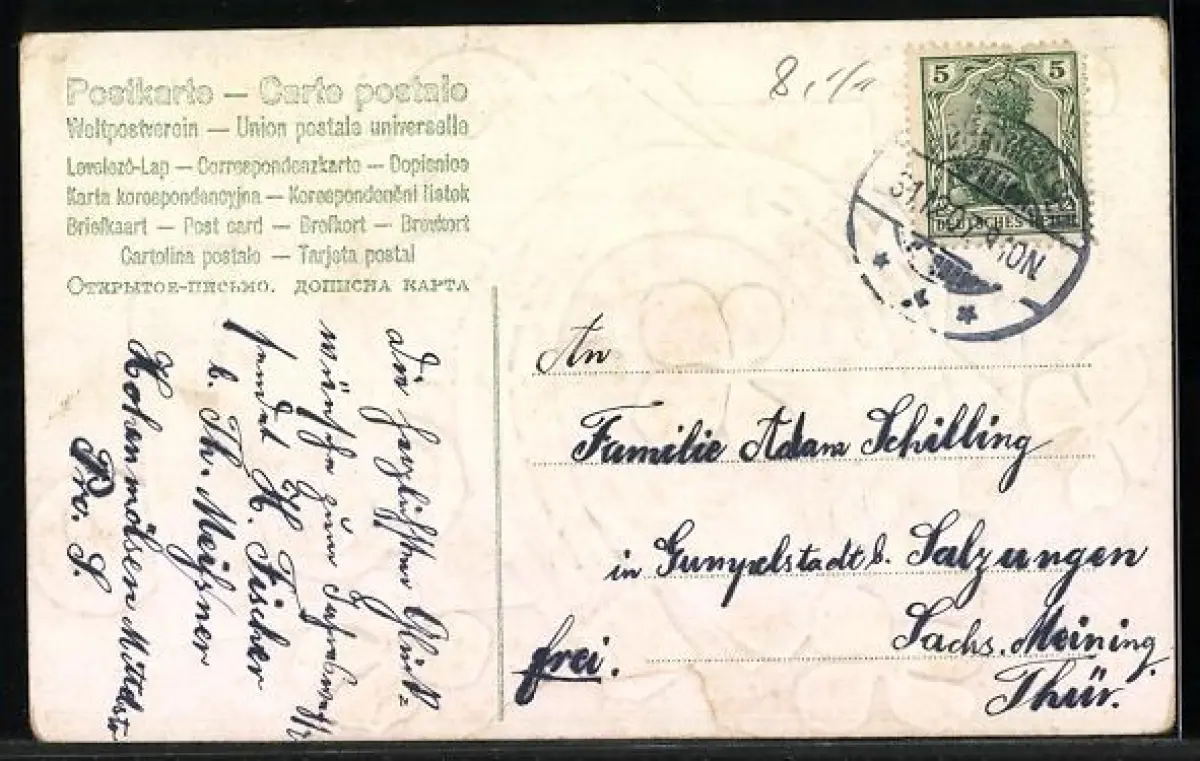 Postkarte — Carte postale
Weltpostverein — Union postale universelle
Levelező-Lap — Correspondenzkarte — Dopisnice
Karta korespondencyjna — Korespondenční listek
Briefkaart — Post card — Brefkort — Brevkort
Cartolina postale — Tarjeta postal
Открытое-письмо. дописна карта
5 5
DEUTSCHES REICH
An
Familie Adam Schilling
in Gumpelstadt b. Salzungen
Sachs. Meining
Thür.
frei.
Die herzlichsten Glück-
wünsche zum Jahreswechsel
sendet H. Fischer
b. Th. Meißner
Hohenmölsen
Pro. S.